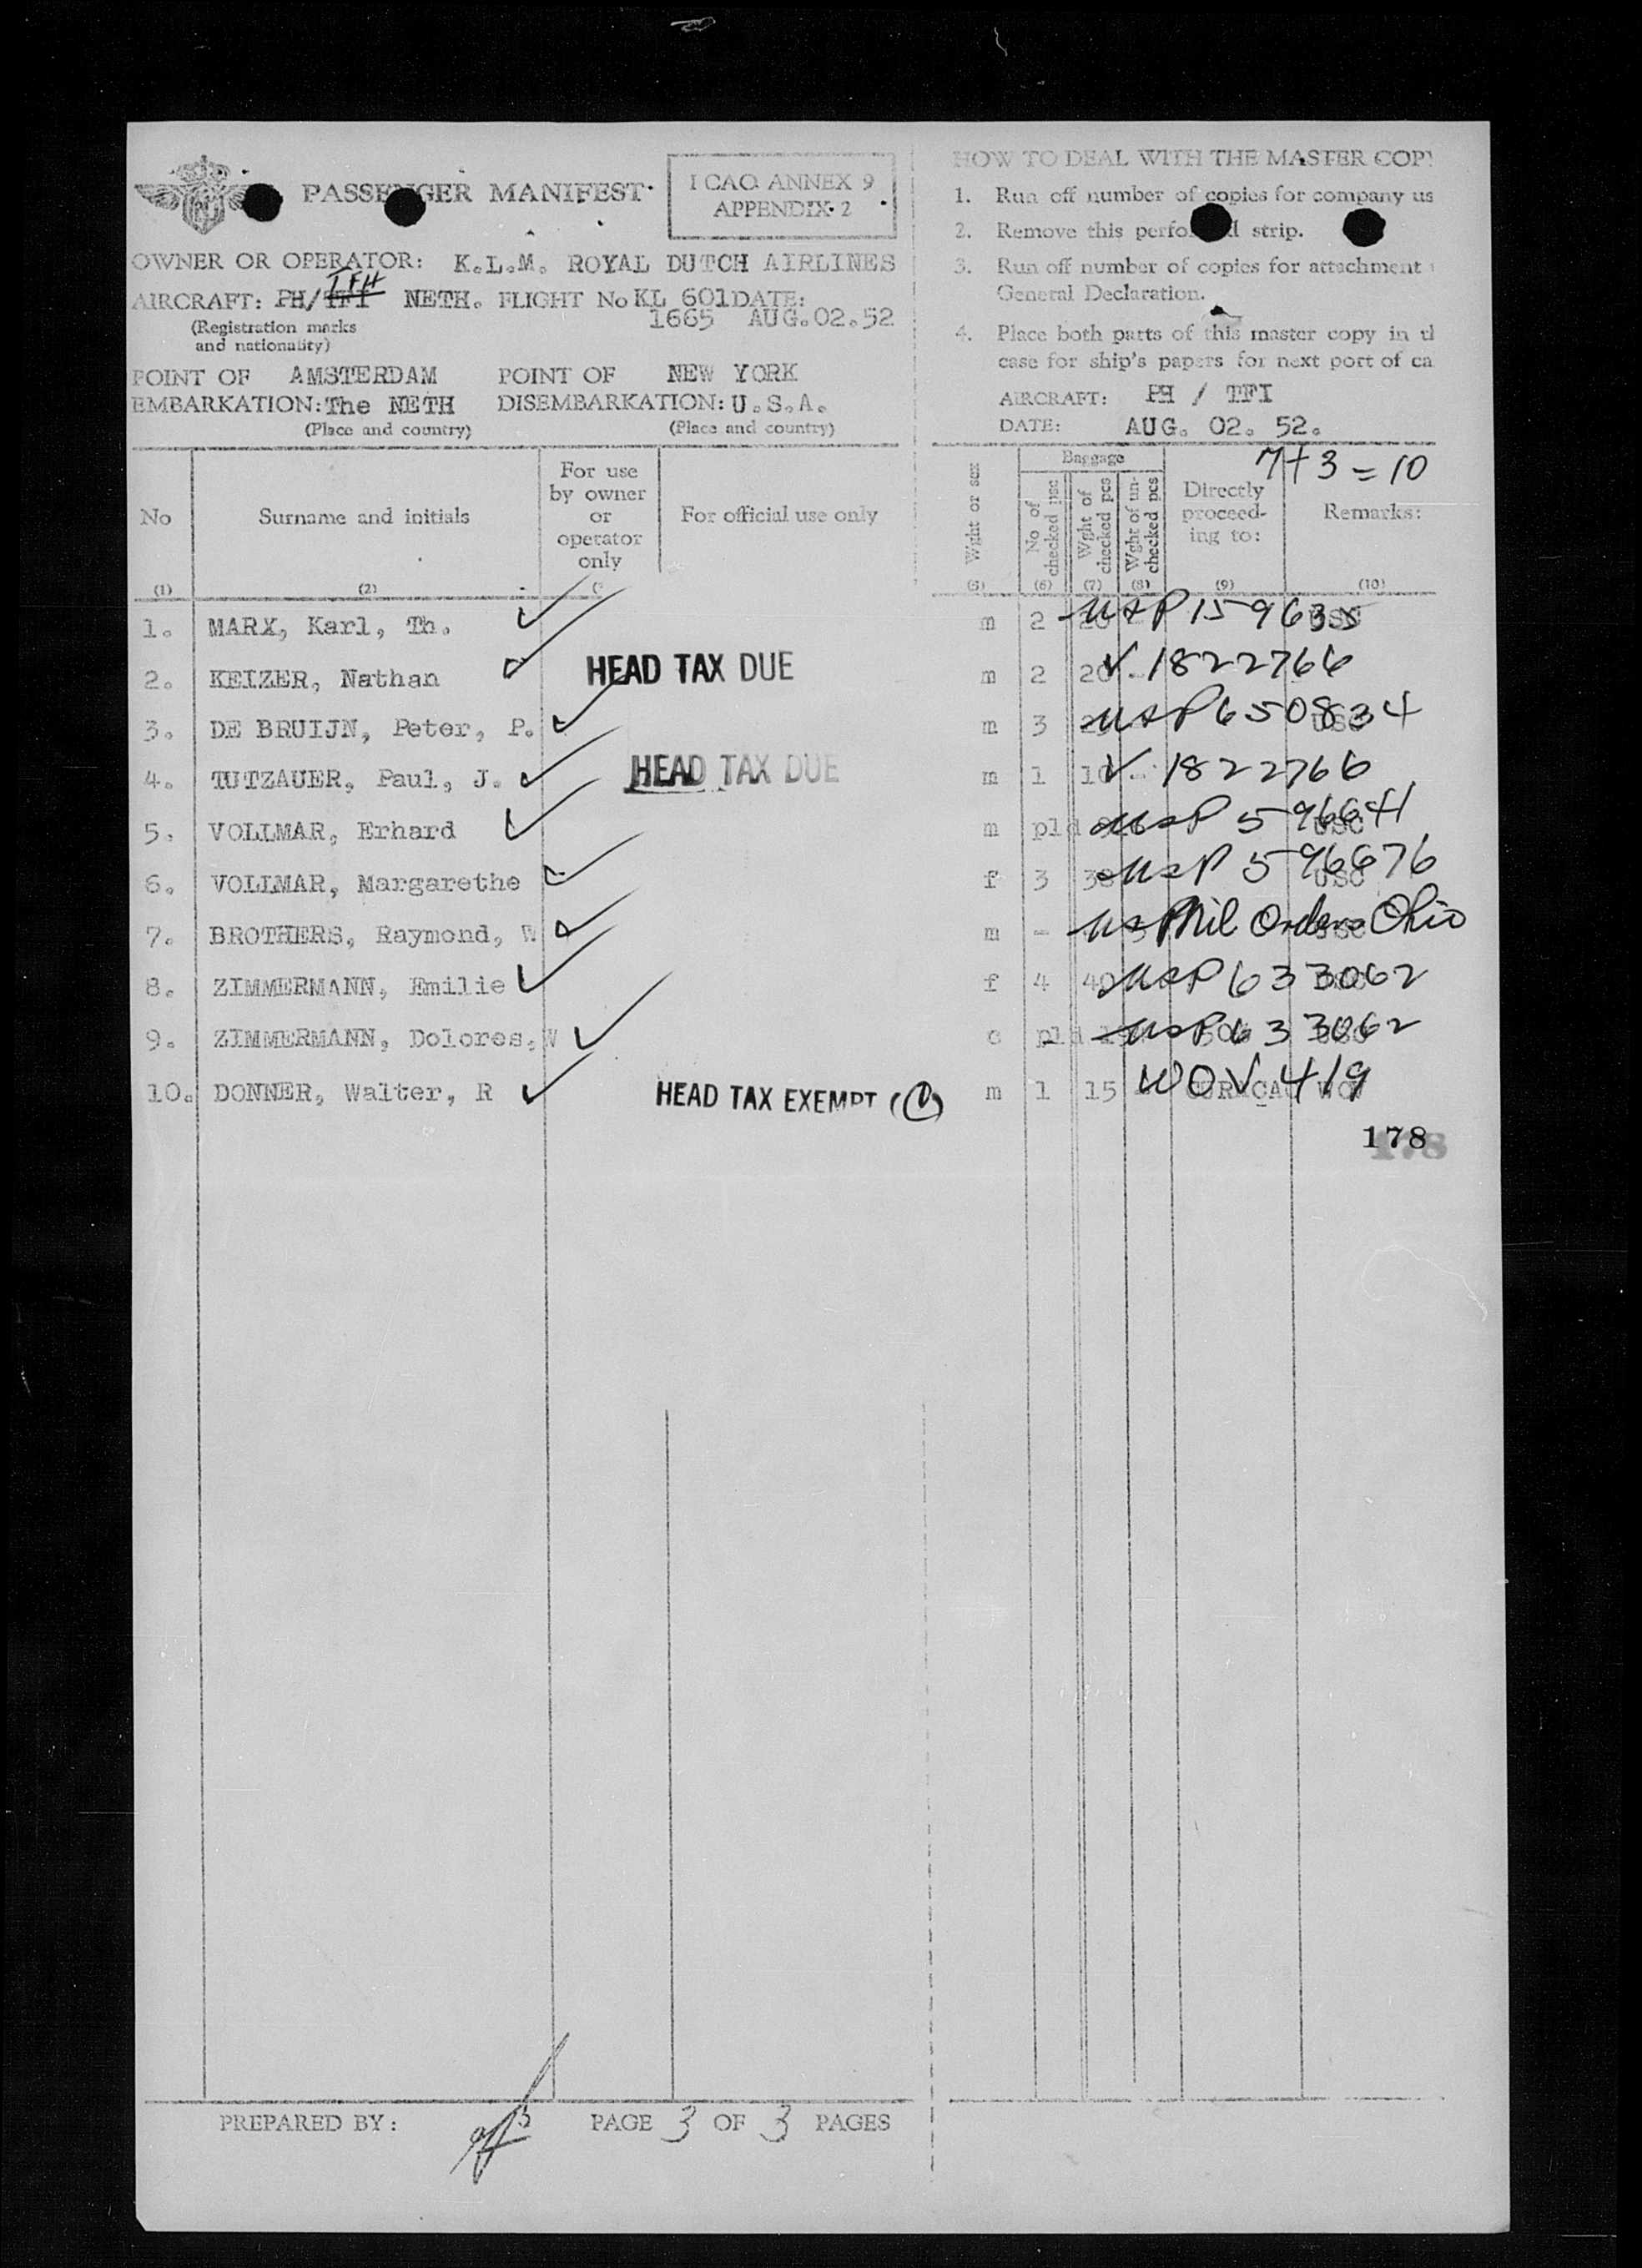 PASSENGER MANIFEST
I CAO ANNEX 9
APPENDIX 2
OWNER OR OPERATOR: K.L.M. ROYAL DUTCH AIRLINES
TFH
AIRCRAFT: PH/TFI NETH. FLIGHT No KL 601 DATE:
1665 AUG.02.52
(Registration marks
and nationality)
POINT OF AMSTERDAM POINT OF NEW YORK
EMBARKATION: The NETH DISEMBARKATION: U.S.A.
(Place and country) (Place and country)
HOW TO DEAL WITH THE MASTER COPY
1. Run off number of copies for company us
2. Remove this strip.
3. Run off number of copies for attachment
General Declaration.
4. Place both parts of this master copy in
case for ship's papers for next port of ca
AIRCRAFT: PH / TFI
DATE: AUG. 02. 52.
7+3=10
No
Surname and initials
For use
by owner
or
operator
only
For official use only
Wght or sex
Baggage
No of checked pcs
Wght of checked pcs
Wght of un-checked pcs
Directly
proceed-
ing to:
Remarks:
(1) (2) (6) (7) (8) (9) (10)
1. MARX, Karl, Th. m 2 USP 159635
2. KEIZER, Nathan HEAD TAX DUE m 2 20 - V 1822766
3. DE BRUIJN, Peter, P. m 3 USP 650834
4. TUTZAUER, Paul, J. HEAD TAX DUE m 1 10 - V 1822766
5. VOLLMAR, Erhard m pld USP 596641
6. VOLLMAR, Margarethe f 3 USP 596676
7. BROTHERS, Raymond, W m - US Mil Orders Ohio
8. ZIMMERMANN, Emilie f 4 40 USP 633062
9. ZIMMERMANN, Dolores, W c pld USP 633062
10. DONNER, Walter, R HEAD TAX EXEMPT m 1 15 CURACAO WOV 419
178
PREPARED BY: PAGE 3 OF 3 PAGES